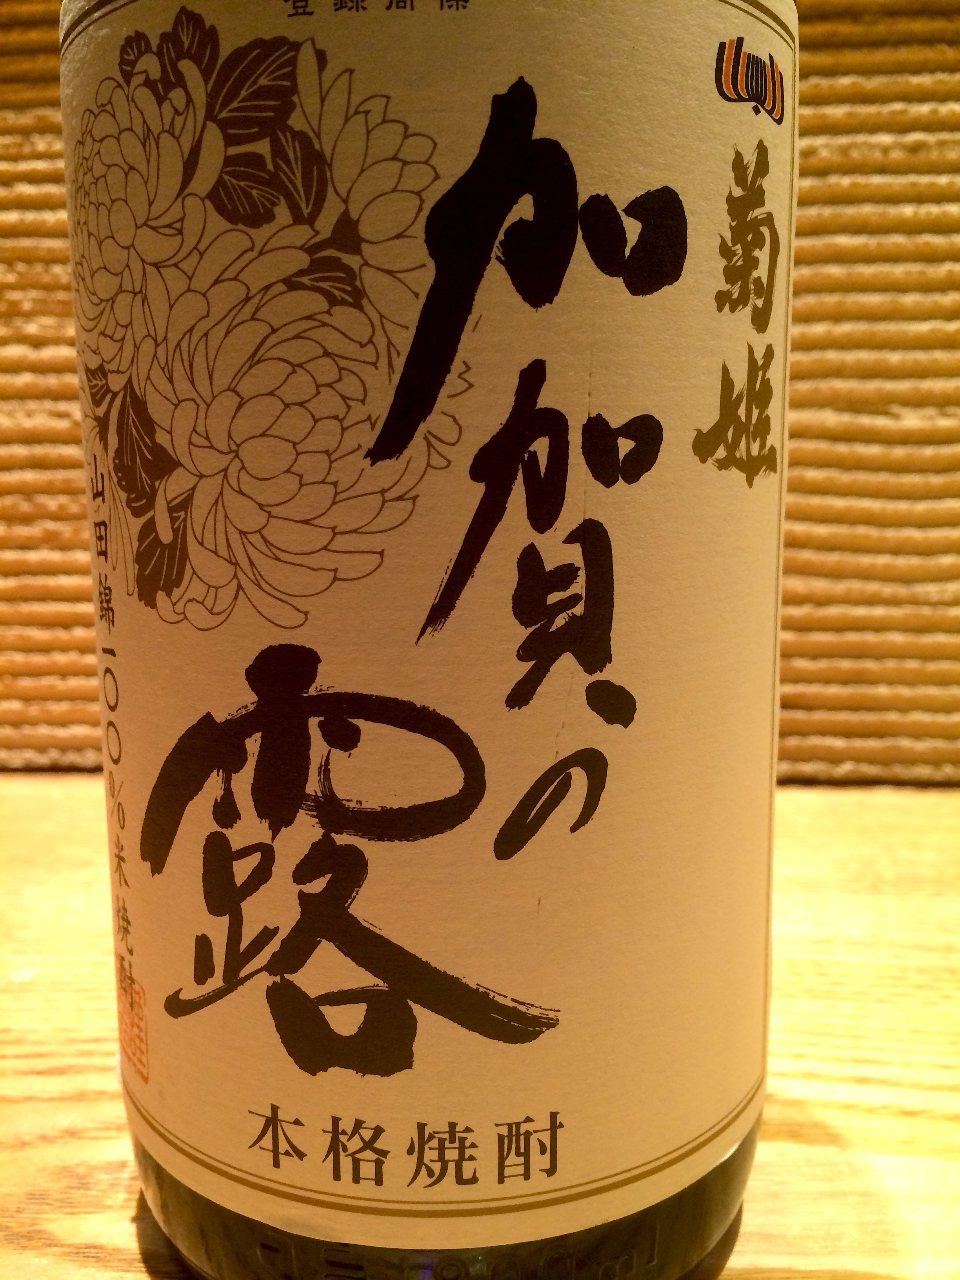 登録商標
菊姫
加賀の
露
山田錦一〇〇%米焼酎
本格焼酎